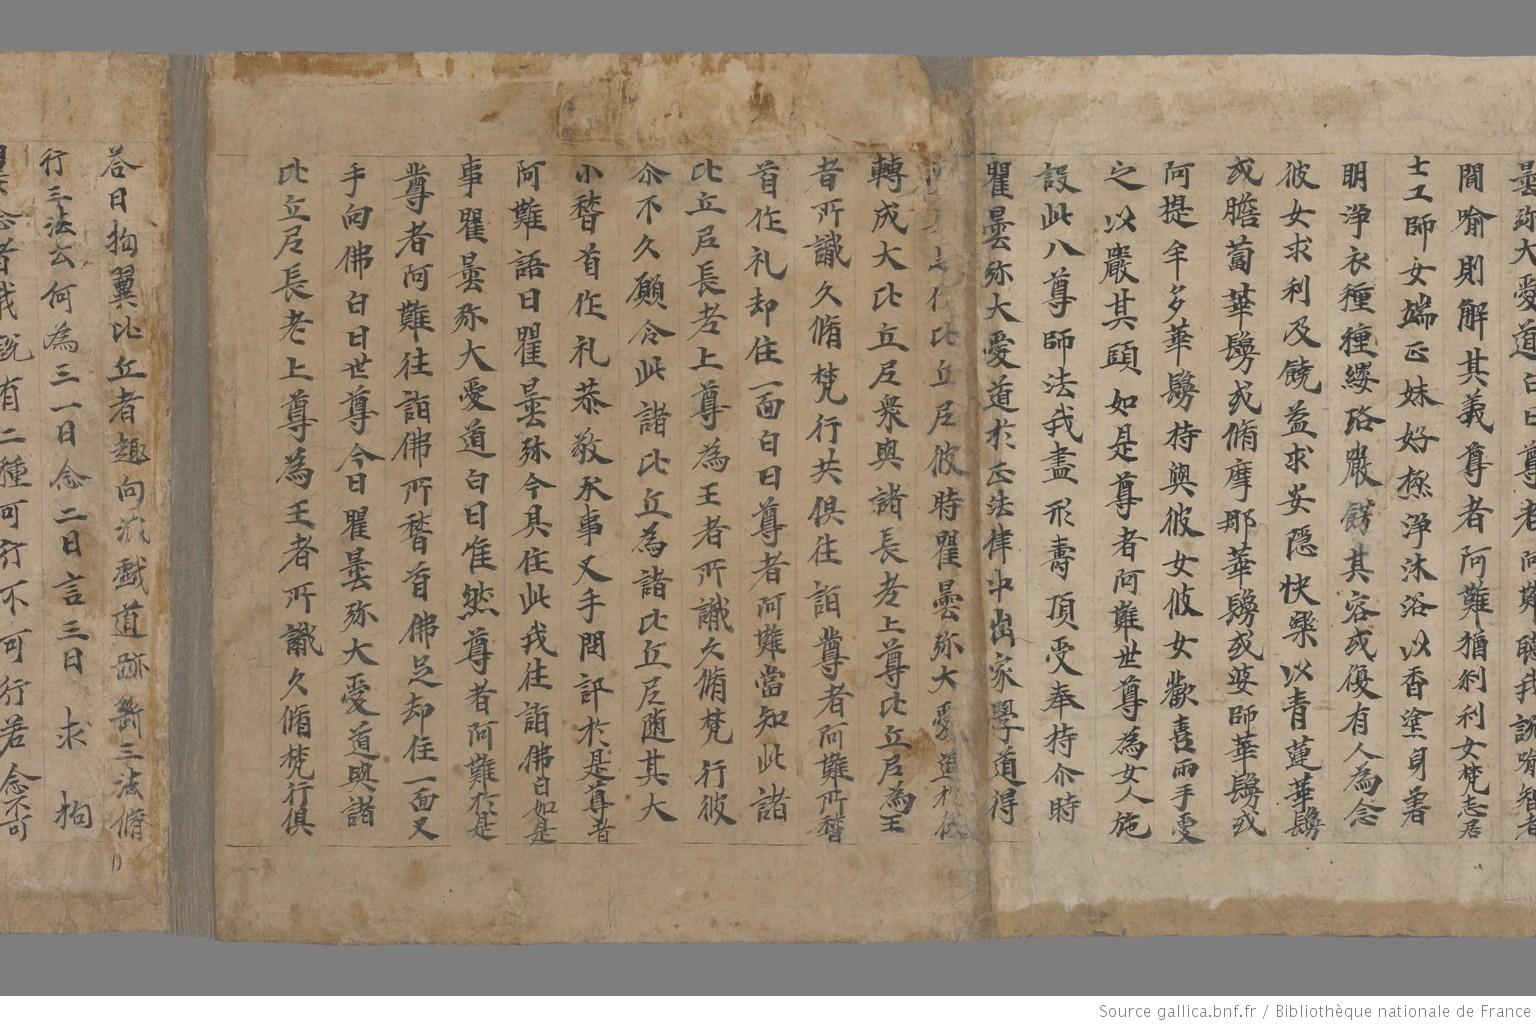 曇弥大愛道白曰尊者阿難聽我說喻智者
聞喻則解其義尊者阿難猶刹利女梵志居
士工師女端正妹好極淨沐浴以香塗身著
明淨衣種種纓珞嚴餝其容或復有人為念
彼女求利及饒益求安隱快樂以青蓮華鬘
或瞻蔔華鬘或脩摩那華鬘或婆師華鬘或
阿提牟多華鬘持與彼女彼女歡喜兩手受
之以嚴其頭如是尊者阿難世尊為女人施
設此八尊師法我盡形壽頂受奉持尒時
瞿曇弥大愛道於正法律中出家學道得
比丘尼彼時瞿曇弥大愛道於後
轉成大比丘尼衆與諸長老上尊比丘尼為王
者所識久脩梵行共俱往詣尊者阿難所稽
首作礼却住一面白曰尊者阿難當知此諸
比丘尼長老上尊為王者所識久脩梵行彼
尒不久願令此諸比丘為諸比丘尼随其大
小稽首作礼恭敬承事叉手問訊於是尊者
阿難語曰瞿曇弥今且住此我往詣佛白如是
事瞿曇弥大愛道白曰唯然尊者阿難於是
尊者阿難往詣佛所稽首佛足却住一面叉
手向佛白曰世尊今日瞿曇弥大愛道與諸
比丘尼長老上尊為王者所識久脩梵行俱
荅曰拘翼比丘者趣向滅戲道跡断三法脩
行三法云何為三一曰念二曰言三曰求拘
翼念者我說有二種可行不可行若念不可
Source gallica.bnf.fr / Bibliothèque nationale de France